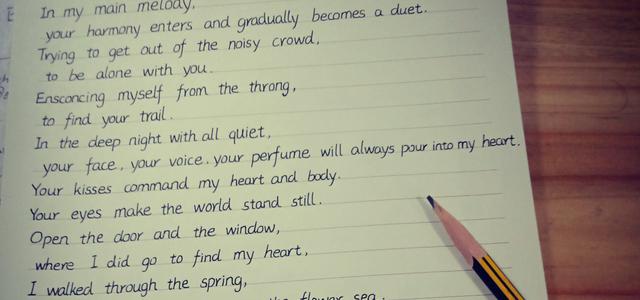 In my main melody,
your harmony enters and gradually becomes a duet.
Trying to get out of the noisy crowd,
to be alone with you.
Ensconcing myself from the throng,
to find your trail.
In the deep night with all quiet,
your face, your voice, your perfume will always pour into my heart.
Your kisses command my heart and body.
Your eyes make the world stand still.
Open the door and the window,
where I did go to find my heart,
I walked through the spring,
the flower sea.